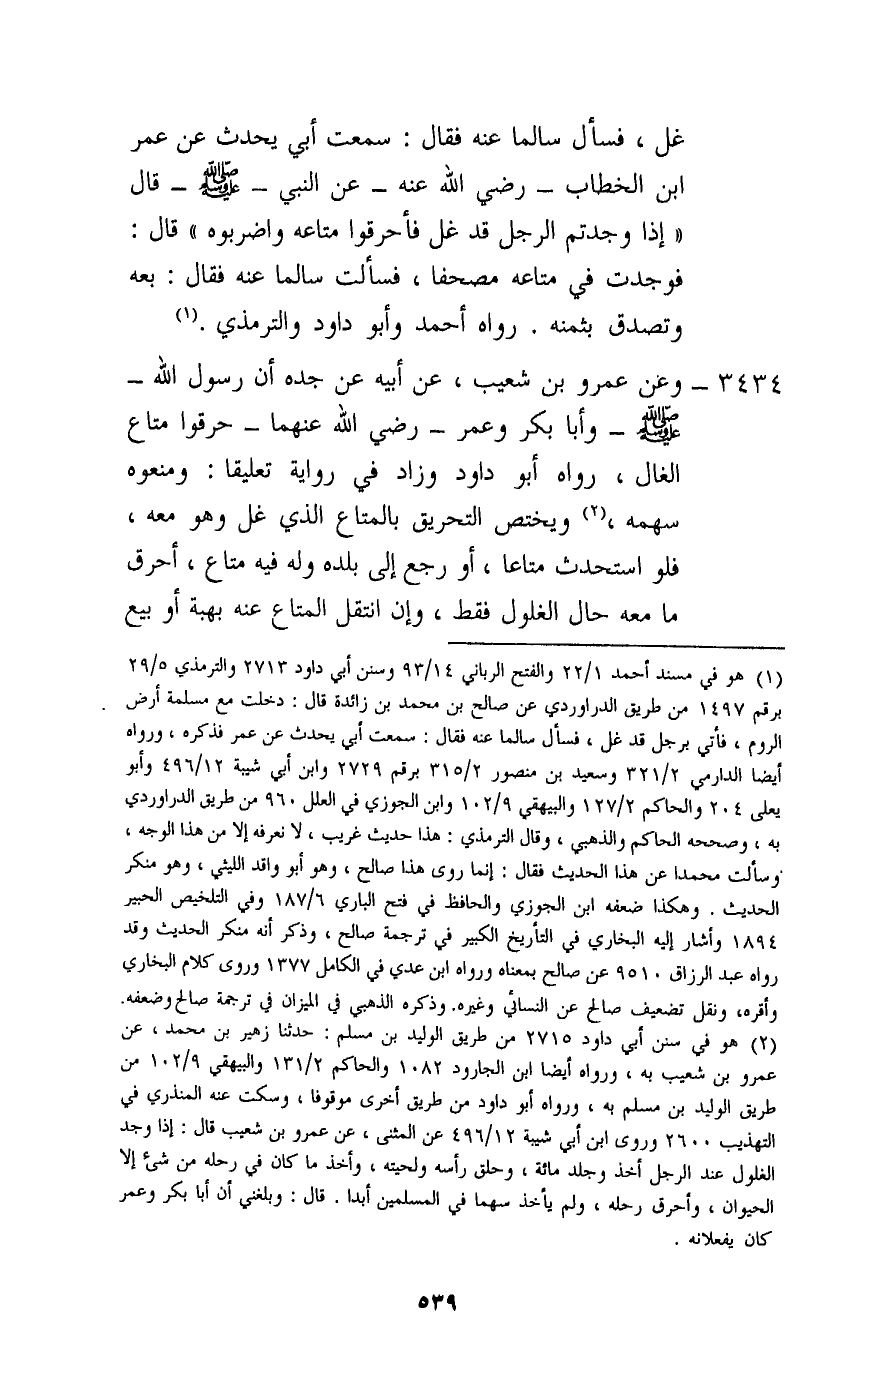 غل ، فسأل سالما عنه فقال : سمعت أبي يحدث عن عمر
ابن الخطاب – رضي الله عنه – عن النبي – ﷺ – قال
« إذا وجدتم الرجل قد غل فأحرقوا متاعه واضربوه » قال :
فوجدت في متاعه مصحفا ، فسألت سالما عنه فقال : بعه
وتصدق بثمنه . رواه أحمد وأبو داود والترمذي .(١)
٣٤٣٤ – وعن عمرو بن شعيب ، عن أبيه عن جده أن رسول الله –
ﷺ – وأبا بكر وعمر – رضي الله عنهما – حرقوا متاع
الغال ، رواه أبو داود وزاد في رواية تعليقا : ومنعوه
سهمه ،(٢) ويختص التحريق بالمتاع الذي غل وهو معه ،
فلو استحدث متاعا ، أو رجع إلى بلده وله فيه متاع ، أحرق
ما معه حال الغلول فقط ، وإن انتقل المتاع عنه بهبة أو بيع
(١) هو في مسند أحمد ٢٢/١ والفتح الرباني ٩٣/١٤ وسنن أبي داود ٢٧١٣ والترمذي ٢٩/٥
برقم ١٤٩٧ من طريق الدراوردي عن صالح بن محمد بن زائدة قال : دخلت مع مسلمة أرض
الروم ، فأتي برجل قد غل ، فسأل سالما عنه فقال : سمعت أبي يحدث عن عمر فذكره ، ورواه
أيضا الدارمي ٣٢١/٢ وسعيد بن منصور ٣١٥/٢ برقم ٢٧٢٩ وابن أبي شيبة ٤٩٦/١٢ وأبو
يعلى ٢٠٤ والحاكم ١٢٧/٢ والبيهقي ١٠٢/٩ وابن الجوزي في العلل ٩٦٠ من طريق الدراوردي
به ، وصححه الحاكم والذهبي ، وقال الترمذي : هذا حديث غريب ، لا نعرفه إلا من هذا الوجه ،
وسألت محمدا عن هذا الحديث فقال : إنما روى هذا صالح ، وهو أبو واقد الليثي ، وهو منكر
الحديث . وهكذا ضعفه ابن الجوزي والحافظ في فتح الباري ١٨٧/٦ وفي التلخيص الحبير
١٨٩٤ وأشار إليه البخاري في التأريخ الكبير في ترجمة صالح ، وذكر أنه منكر الحديث وقد
رواه عبد الرزاق ٩٥١٠ عن صالح بمعناه ورواه ابن عدي في الكامل ١٣٧٧ وروى كلام البخاري
وأقره، ونقل تضعيف صالح عن النسائي وغيره. وذكره الذهبي في الميزان في ترجمة صالح وضعفه.
(٢) هو في سنن أبي داود ٢٧١٥ من طريق الوليد بن مسلم : حدثنا زهير بن محمد ، عن
عمرو بن شعيب به ، ورواه أيضا ابن الجارود ١٠٨٢ والحاكم ١٣١/٢ والبيهقي ١٠٢/٩ من
طريق الوليد بن مسلم به ، ورواه أبو داود من طريق أخرى موقوفا ، وسكت عنه المنذري في
التهذيب ٢٦٠٠ وروى ابن أبي شيبة ٤٩٦/١٢ عن المثنى ، عن عمرو بن شعيب قال : إذا وجد
الغلول عند الرجل أخذ وجلد مائة ، وحلق رأسه ولحيته ، وأخذ ما كان في رحله من شئ إلا
الحيوان ، وأحرق رحله ، ولم يأخذ سهما في المسلمين أبدا . قال : وبلغني أن أبا بكر وعمر
كان يفعلانه .
٥٣٩